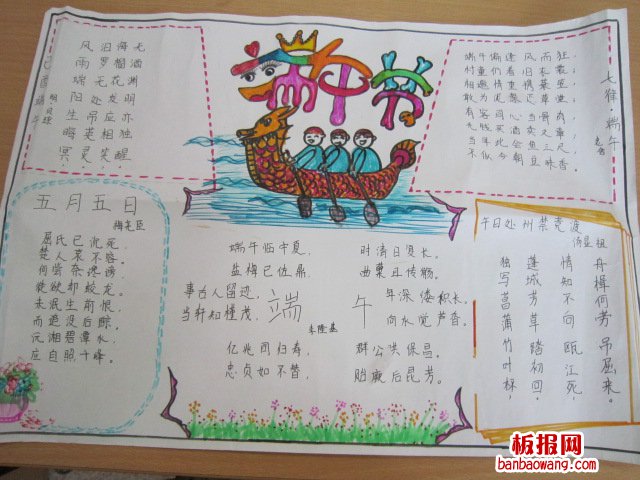 端午节
己酉端午
明·贝琼
风雨端阳生晦冥，
汨罗无处吊英灵。
海榴花发应相
无酒渊明亦独醒
七律·端午
老舍
端午偏逢风雨狂，
村童仍着旧衣裳；
相邀情重携蓑笠，
敢为泥深恋草堂；
有客同心当骨肉，
无钱买酒卖文章；
当年此会鱼三尺，
不似今朝豆味香。
五月五日
梅尧臣
屈氏已沉死，
楚人哀不容。
何尝奈谗谤，
徒欲却蛟龙。
未泯生前恨，
而追没后踪。
沅湘碧潭水，
应自照千峰。
端午
李隆基
端午临中夏，
时清日复长。
盐梅已佐鼎，
曲糵且传觞。
事古人留迹，
年深缕积长。
当轩知槿茂，
向水觉芦香。
亿兆同归寿，
群公共保昌。
忠贞如不替，
贻厥后昆芳。
午日处州禁竞渡
汤显祖
独写菖蒲竹叶杯，
蓬城芳草踏初回。
情知不向瓯江死，
舟楫何劳吊屈来。
板报网
banbaowang.com